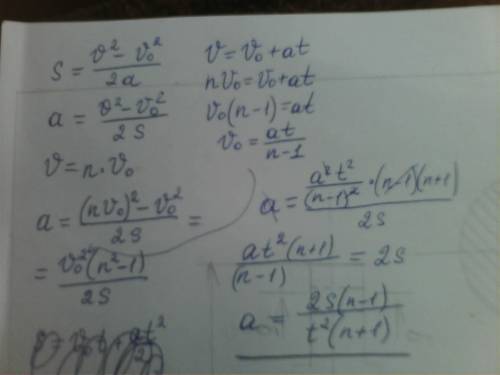 S = (v² − v₀²) / 2a
a = (v² − v₀²) / 2S
v = n · v₀
a = ((nv₀)² − v₀²) / 2S =
= v₀²(n² − 1) / 2S
v = v₀ + at
nv₀ = v₀ + at
v₀(n−1) = at
v₀ = at / (n−1)
a = (a²t² / (n−1)² · (n−1)(n+1)) / 2S
at²(n+1) / (n−1) = 2S
a = 2S(n−1) / t²(n+1)